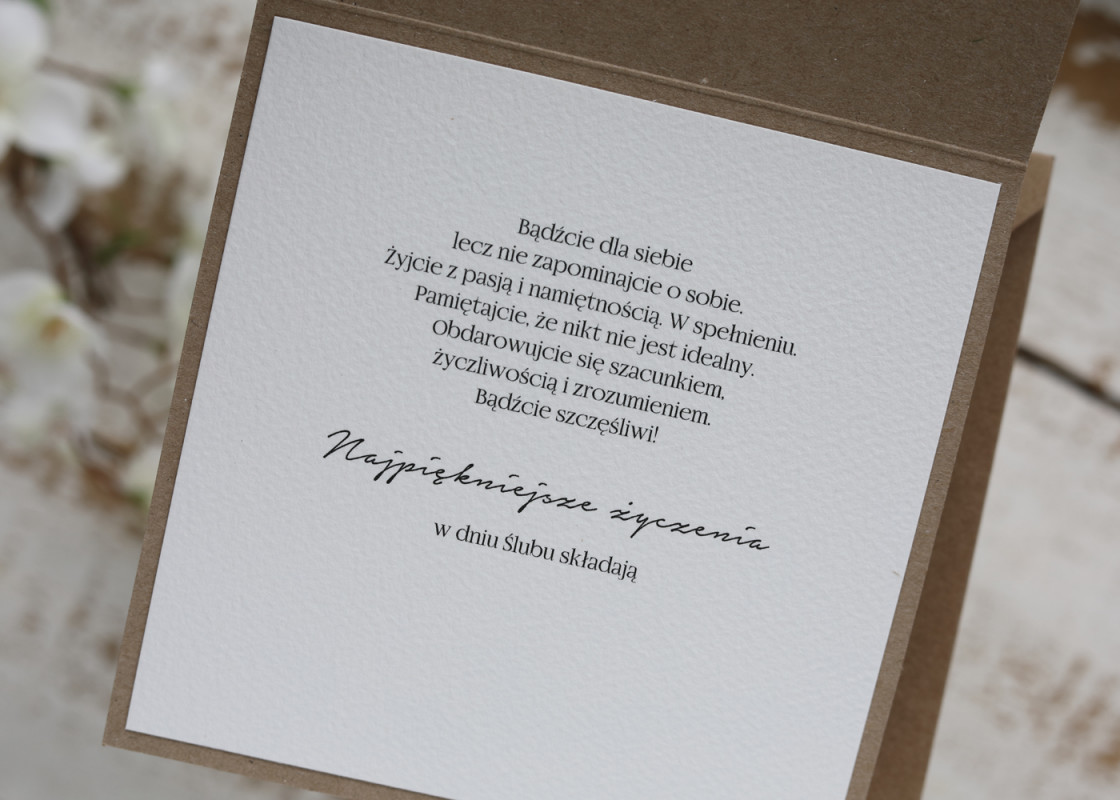 Bądźcie dla siebie
lecz nie zapominajcie o sobie.
Żyjcie z pasją i namiętnością. W spełnieniu.
Pamiętajcie, że nikt nie jest idealny.
Obdarowujcie się szacunkiem,
życzliwością i zrozumieniem.
Bądźcie szczęśliwi!
Najpiękniejsze życzenia
w dniu Ślubu składają